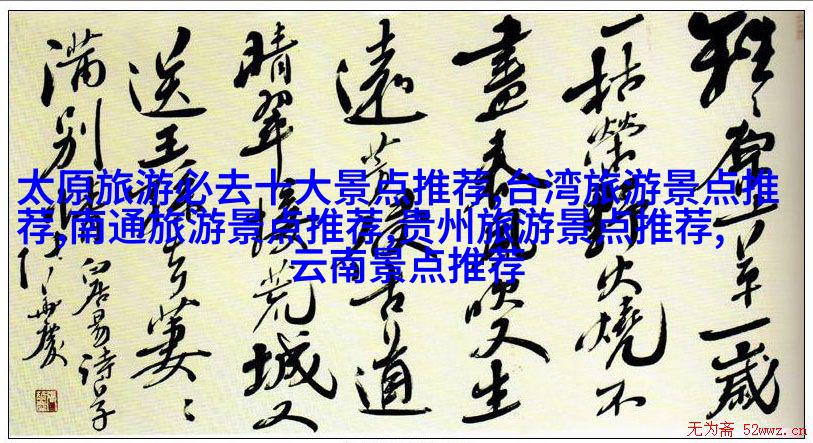 太原旅游必去十大景点推荐,台湾旅游景点推
荐,南通旅游景点推荐,贵州旅游景点推荐,
云南景点推荐
離〻原上草一歲
一枯榮野火燒不
盡春風吹又生
遠芳侵古道
晴翠接荒城又
送王孫去萋〻
满别情
白居易诗
无为斋 52wwz.cn